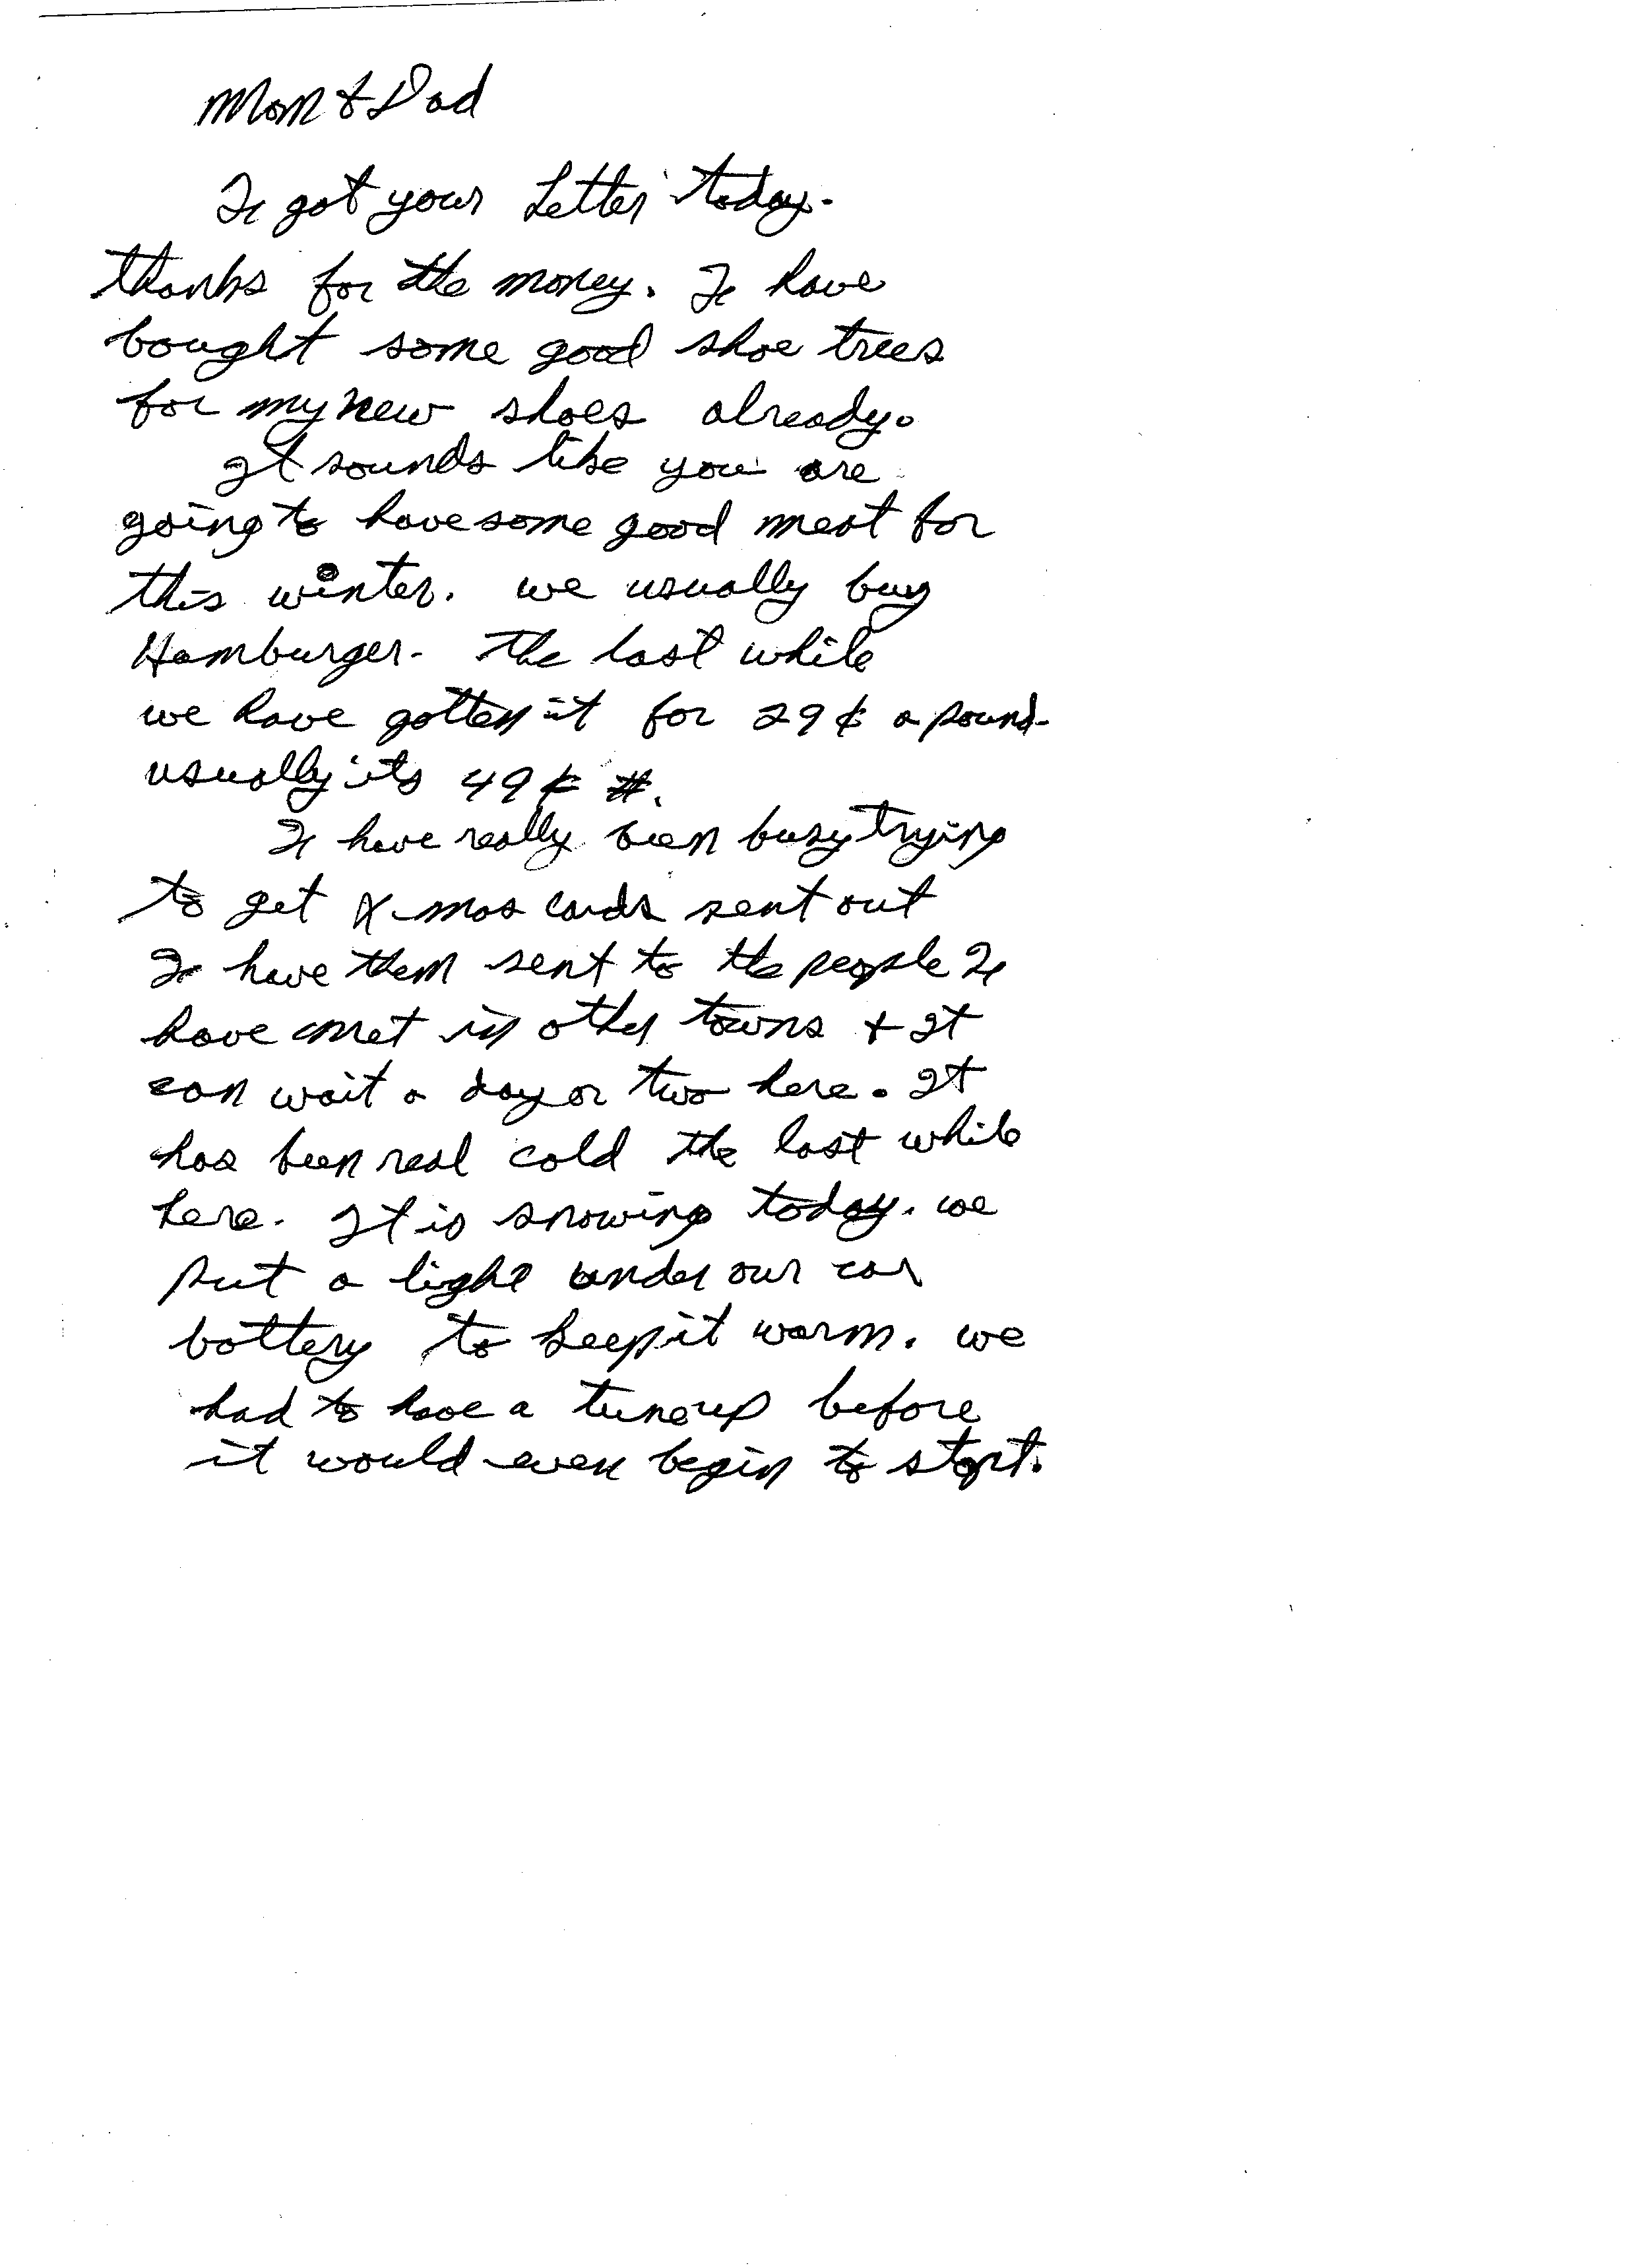 Mom & Dad
I got your Letter today.
thanks for the money. I have
bought some good shoe trees
for my new shoes already.
It sounds like you are
going to have some good meat for
this winter. we usually buy
Hamburger. The last while
we have gotten it for 29¢ a pound.
usually its 49¢ #.
I have really been busy trying
to get X-mas cards sent out
I have them sent to the people I
have met in other towns & It
can wait a day or two here. It
has been real cold the last while
here. It is snowing today. we
put a light under our car
battery to keep it warm. we
had to have a tuneup before
it would even begin to start.